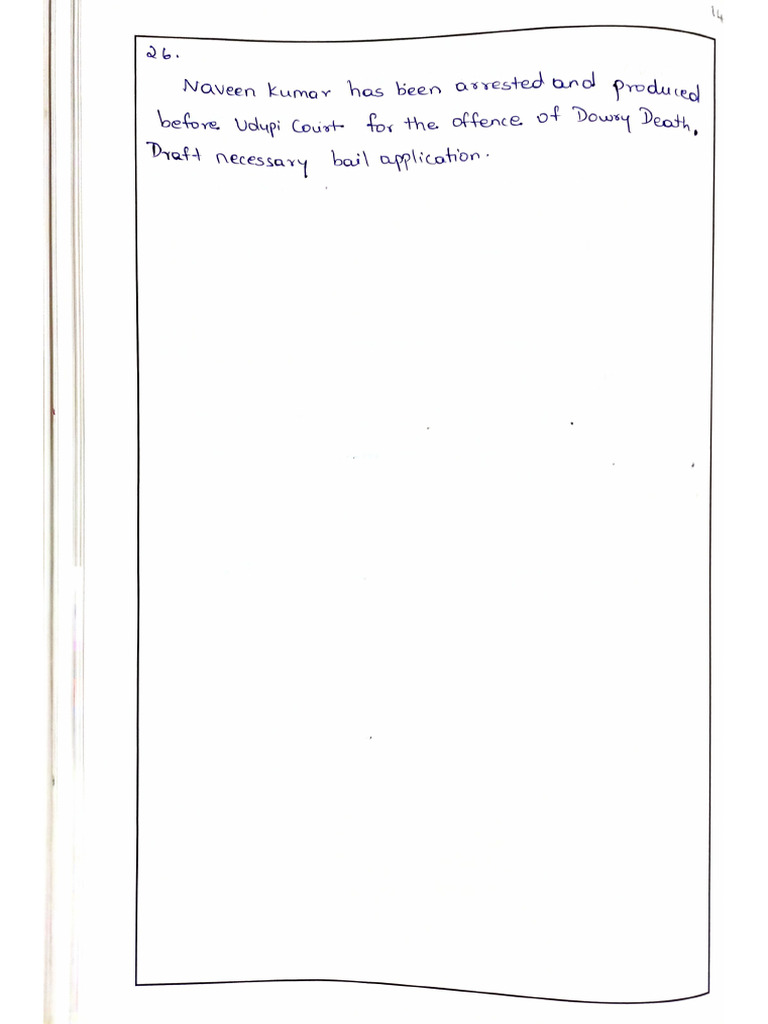 14
26.
Naveen Kumar has been arrested and produced
before Udupi Court for the offence of Dowry Death.
Draft necessary bail application.